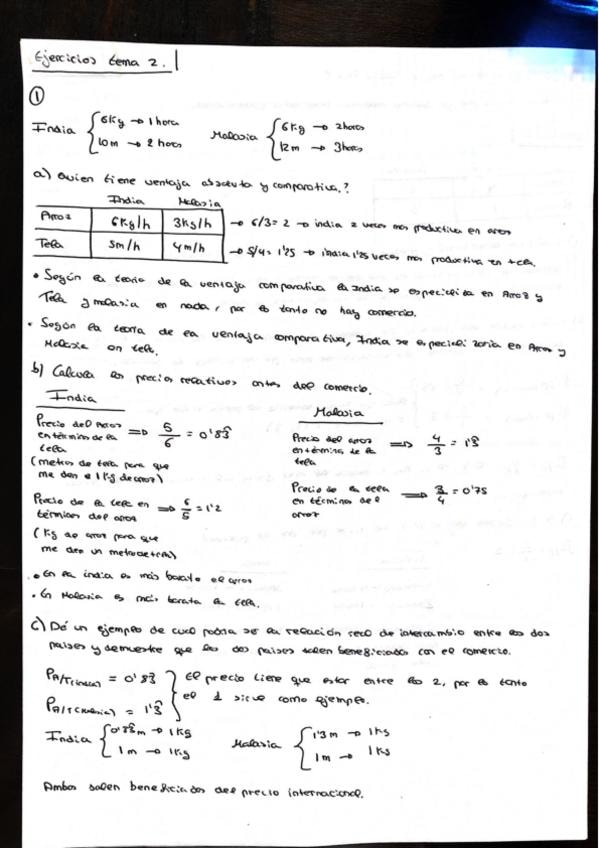 Ejercicios tema 2.
①
India { 6Kg → 1 hora
10m → 2 horas
Malasia { 6Kg → 2 horas
12m → 3 horas
a) Quien tiene ventaja absoluta y comparativa?
India Malasia
Arroz 6Kg/h 3Kg/h → 6/3 = 2 → india 2 veces mas productiva en arroz
Tela 5m/h 4m/h → 5/4 = 1'25 → india 1'25 veces mas productiva en tela.
• Según la teoría de la ventaja comparativa la India se especializa en Arroz y
Tela y malasia en nada, por lo tanto no hay comercio.
• Según la teoría de la ventaja comparativa, India se especializaria en Arroz y
Malasia en tela.
b) Calcula los precios relativos antes del comercio.
India
Precio del Arroz
en términos de la
tela
⇒ 5/6 = 0'83̂
(metros de tela para que
me den 1 Kg de arroz)
Precio de la tela en
términos del arroz
⇒ 6/5 = 1'2
(Kg de arroz para que
me den un metro de tela)
Malasia
Precio del arroz
en términos de la
tela
⇒ 4/3 = 1'3̂
Precio de la tela
en términos del
arroz
⇒ 3/4 = 0'75
• En la india es más barato el arroz
• En Malasia es más barata la tela.
c) Dé un ejemplo de cual podría ser la relación real de intercambio entre los dos
países y demuestre que los dos paises salen beneficiados con el comercio.
PA/T(india) = 0'83̂
PA/T(Malasia) = 1'3̂
} El precio tiene que estar entre los 2, por lo tanto
el 1 sirve como ejemplo.
India { 0'83̂m → 1Kg
1m → 1Kg
Malasia { 1'3m → 1Kg
1m → 1Kg
Ambos salen beneficiados del precio internacional.